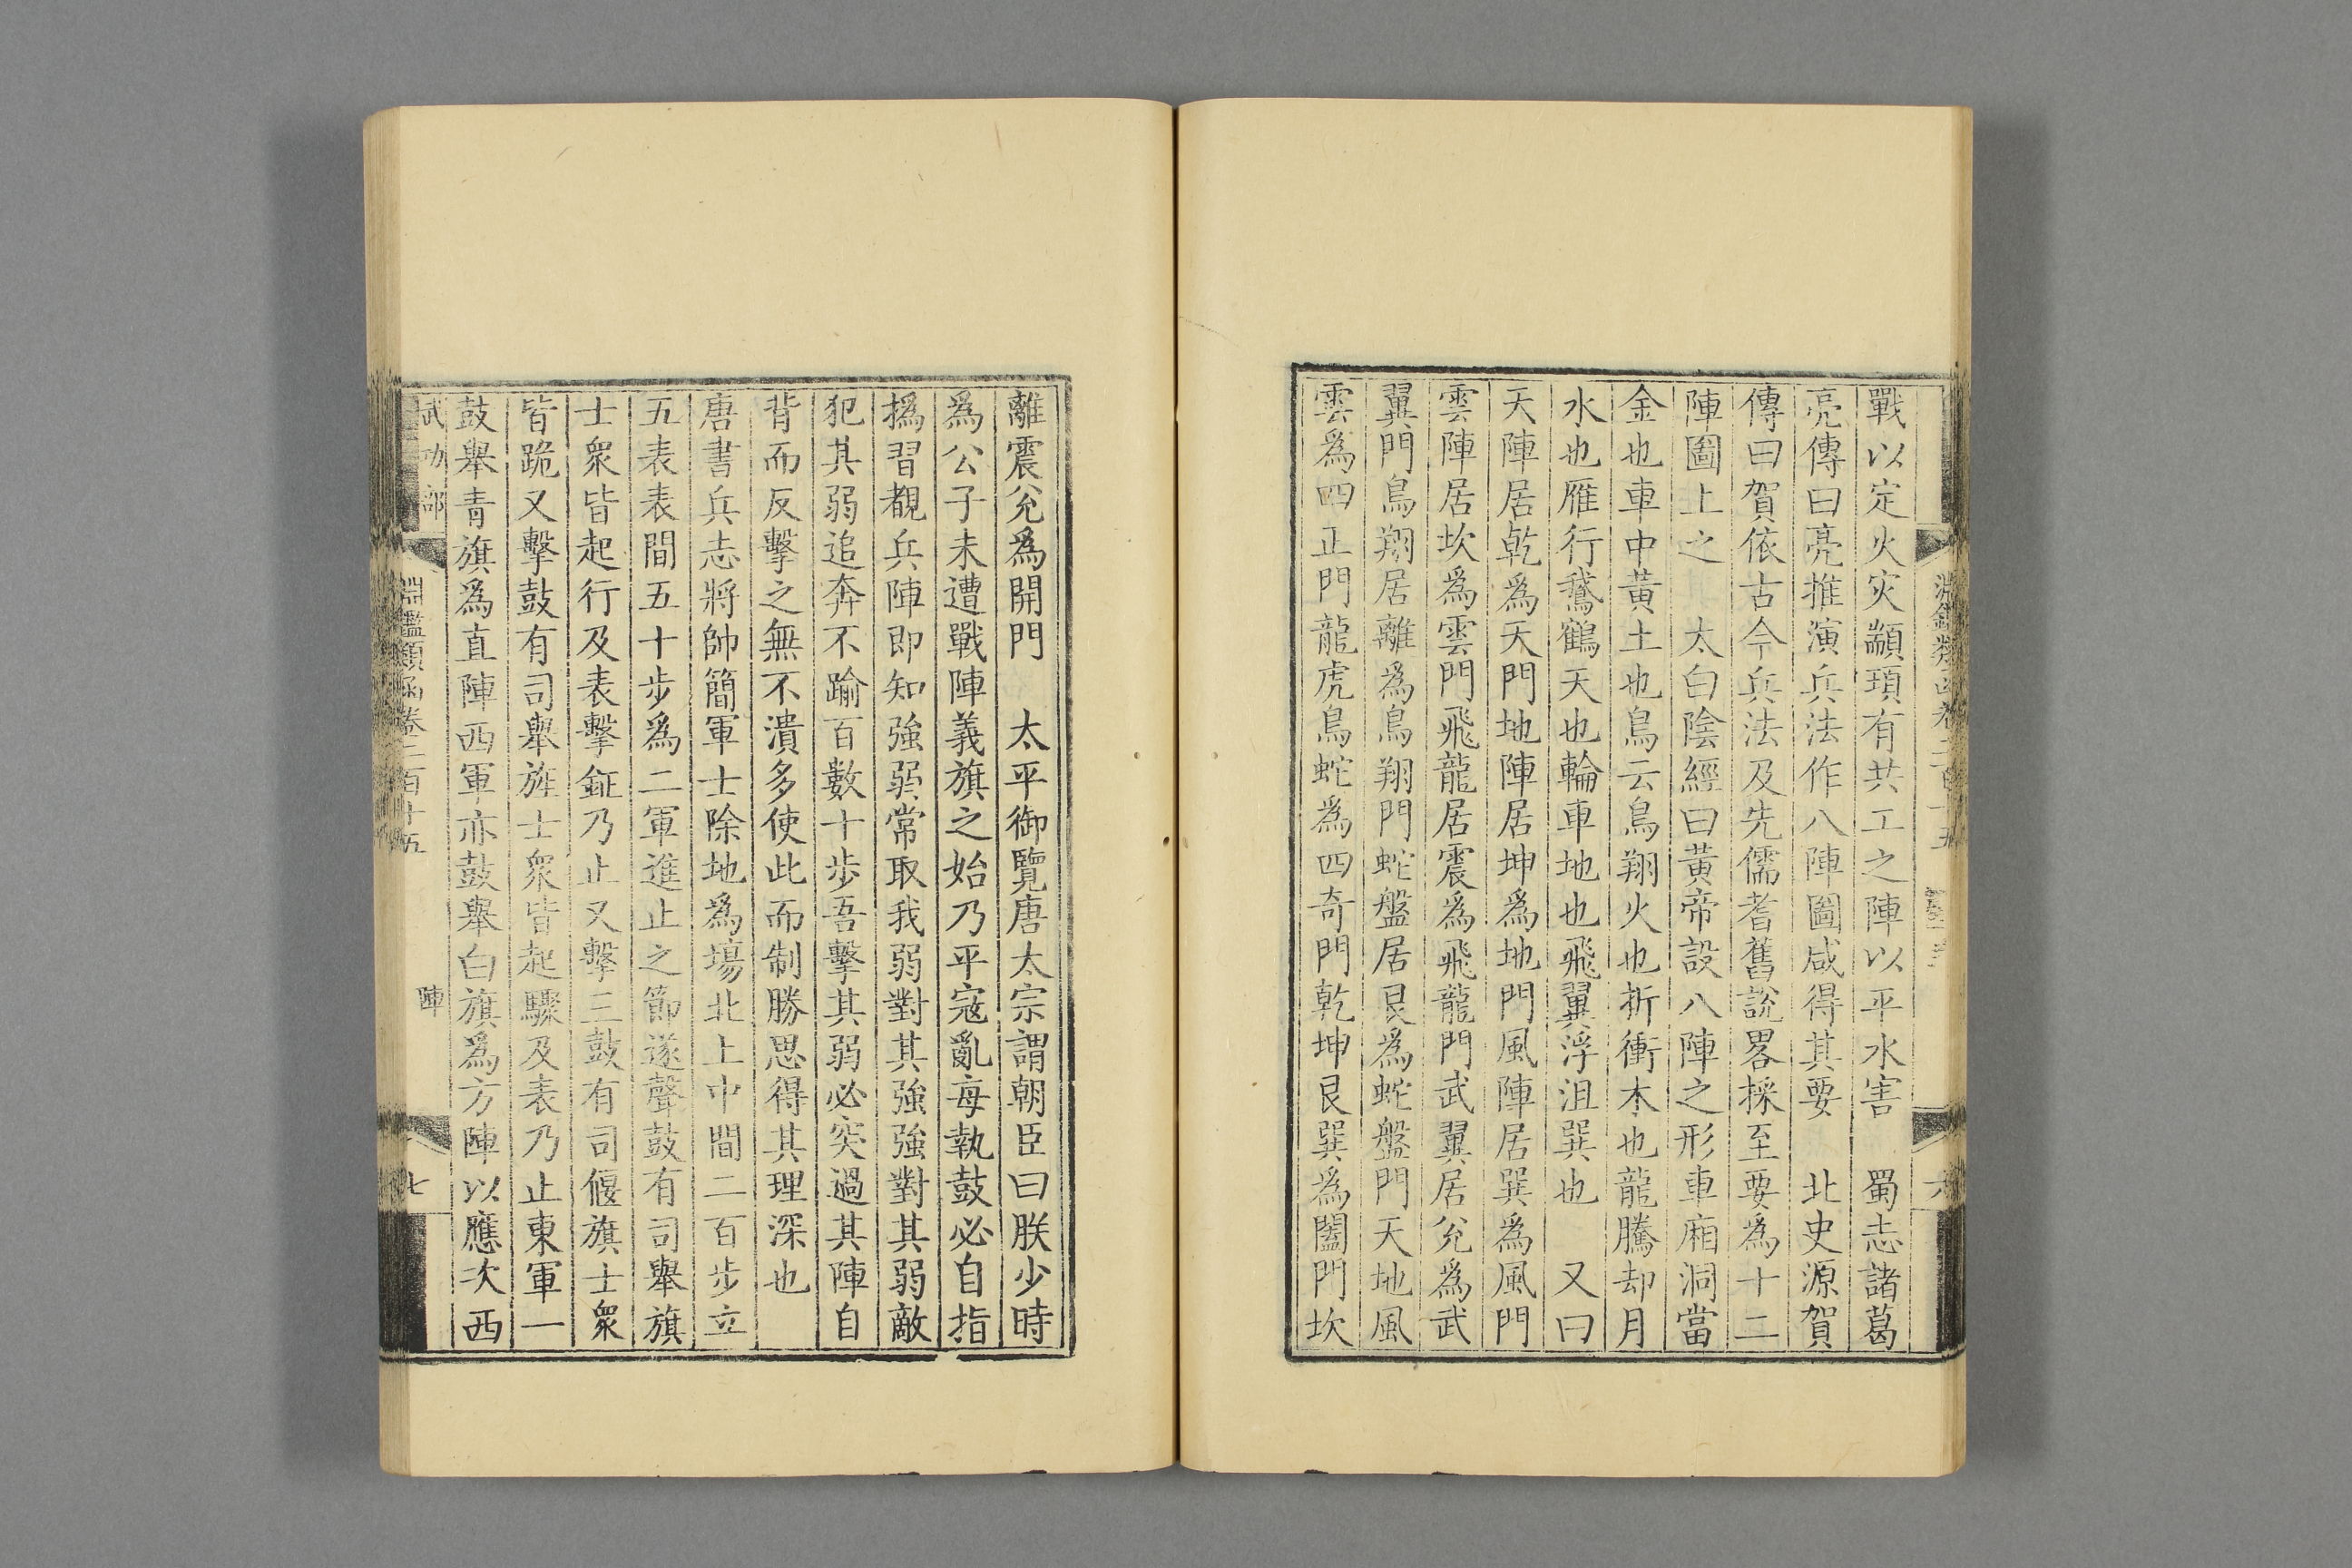 戰以定火灾顓頊有共工之陣以平水害　蜀志諸葛
亮傳曰亮推演兵法作八陣圖咸得其要　北史源賀
傳曰賀依古今兵法及先儒耆舊說畧採至要爲十二
陣圖上之　太白陰經曰黃帝設八陣之形車廂洞當
金也車中黃土也鳥云鳥翔火也折衝木也龍騰却月
水也雁行鵞鶴天也輪車地也飛翼浮沮巽也　又曰
天陣居乾爲天門地陣居坤爲地門風陣居巽爲風門
雲陣居坎爲雲門飛龍居震爲飛龍門武翼居兊爲武
翼門鳥翔居離爲鳥翔門蛇盤居艮爲蛇盤門天地風
雲爲四正門龍虎鳥蛇爲四奇門乾坤艮巽爲闔門坎
離震兊爲開門　太平御覽唐太宗謂朝臣曰朕少時
爲公子未遭戰陣義旗之始乃平寇亂每執鼓必自指
撝習覩兵陣即知強弱常取我弱對其強強對其弱敵
犯其弱追奔不踰百數十步吾擊其弱必突過其陣自
背而反擊之無不潰多使此而制勝思得其理深也
唐書兵志將帥簡軍士除地爲塲北上中間二百步立
五表表間五十步爲二軍進止之節遂聲鼓有司舉旗
士衆皆起行及表擊鉦乃止又擊三鼓有司偃旗士衆
皆跪又擊鼓有司舉旌士衆皆起驟及表乃止東軍一
鼓舉青旗爲直陣西軍亦鼓舉白旗爲方陣以應次西
武功部
淵鑑類函卷二百十五
陣
七